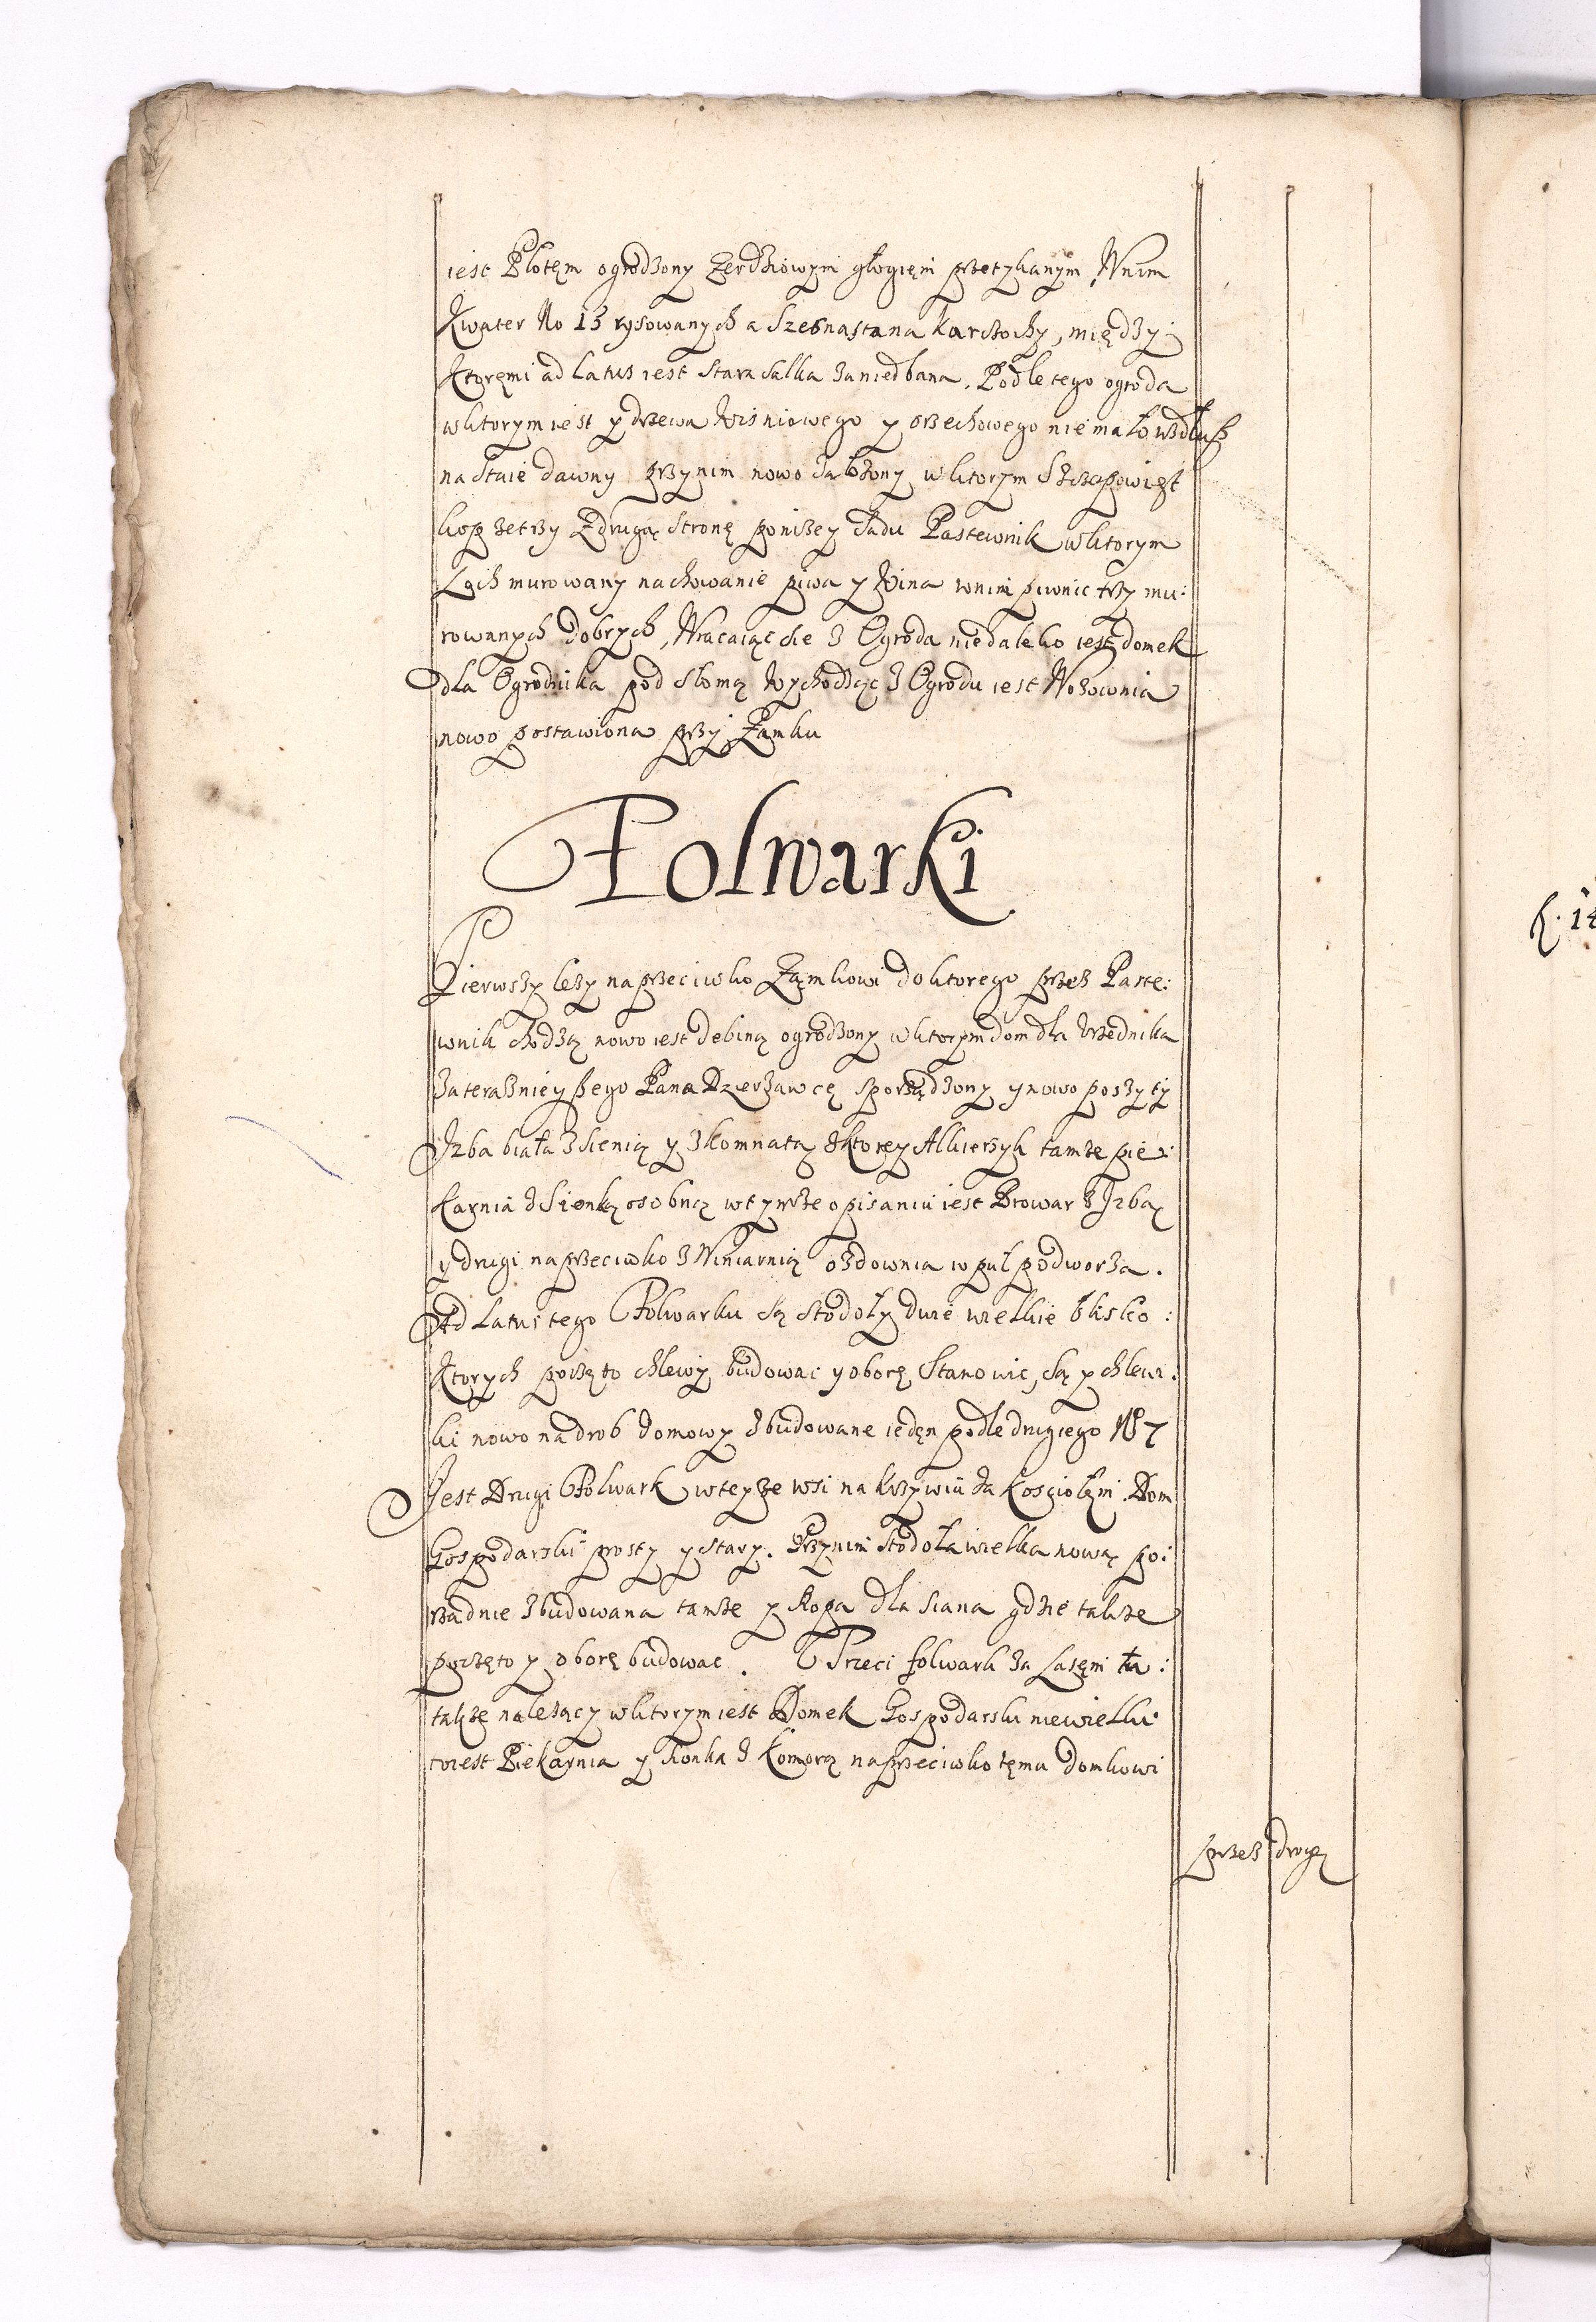 iest Płotęm ogrodzony Zerdziowym głogięm przetykanym, Wnim
Kwater No 15 rysowanych a Szesnastana karczochy, między
Ktoręmi ad latus iest stara salka zaniedbana. Podle tego ogroda
wktorym iest y drzewa Wisniowego y orzechowego nie mało wzdłusz
na staie dawny przynim nowo założony wktorym Szczepow iest
kop zetrzy Zdrugą stronę poniżey Sadu Pastewnik wktorym
Loch murowany nachowanie piwa y Wina wnim piwnic trzy mu:
rowanych dobrych, Wracaiąc sie z Ogroda niedaleko iest domek
dla Ogrodnika pod słomą Wychodząc z Ogrodu iest Wozownia
nowo postawiona przy Zamku
Folwarki
Pierwszy leży naprzeciwko Zamkowi do ktorego przez Paste:
wnik chodzą nowo iest debiną ogrodzony wktorym dom dla Vrzednika
zateraznieyszego Pana Dzerzawcę sporządzony y nowo poszyty
Izba biała zsienią y zkomnatą zktorey Alkierzyk tamże pie:
karnia zSionką osobną wtymże opisaniu iest Browar z Izbą
y drugi naprzeciwko z Winiarnią ozdownia wpuł podworza.
Ad latus tego Folwarku są stodoły dwie wielkie blisko:
Ktorych poczęto chlewy budowac y oborę Stanowic, są y chlewi:
ki nowo na drob domowy zbudowane ieden podle drugiego No 7
Jest Drugi Folwark wteyże wsi na krzywiu za kosciołęm. Dom
Gospodarski prosty y stary. Przynim stodoła wielka nową po:
rzadnie zbudowana tamże y Szopa dla siana gdzie także
poczęto y oborę budowac. Trzeci folwark za lasęm tu:
także należący wktorym iest Domek Gospodarski niewielki
toiest Piekarnia y sionka z Komorą naprzeciwko tęmu domkowi
przez drogę